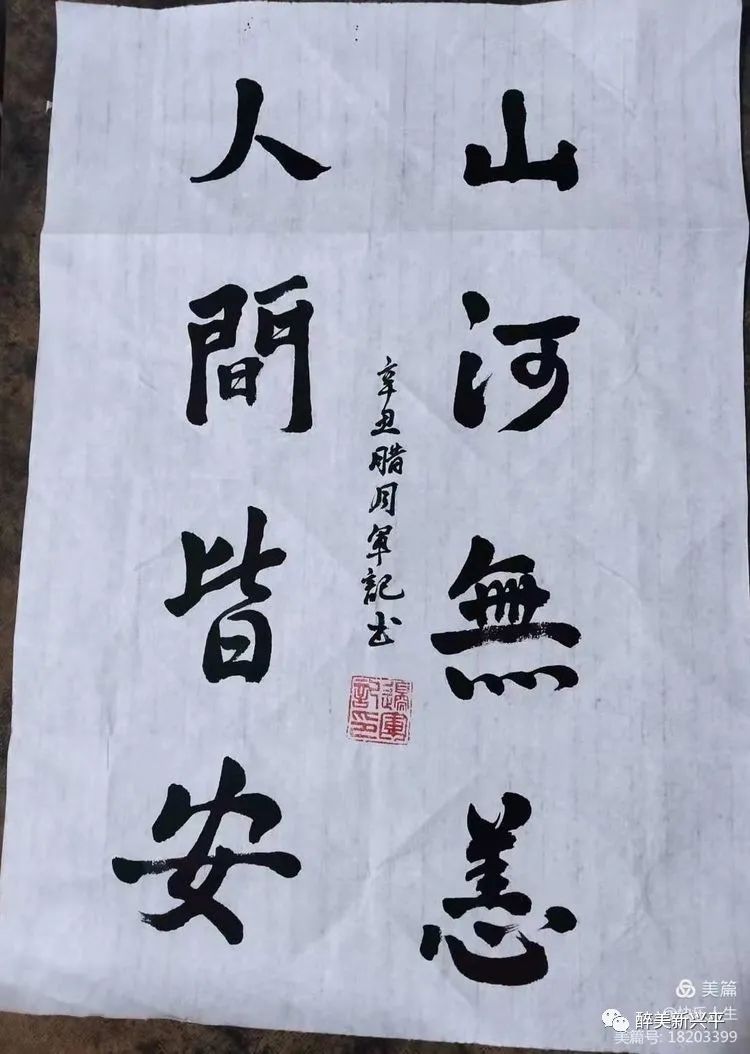 山河無恙
人間皆安
辛丑腊月军記书
邊軍記印
美篇
醉美新兴平
美篇号: 18203399